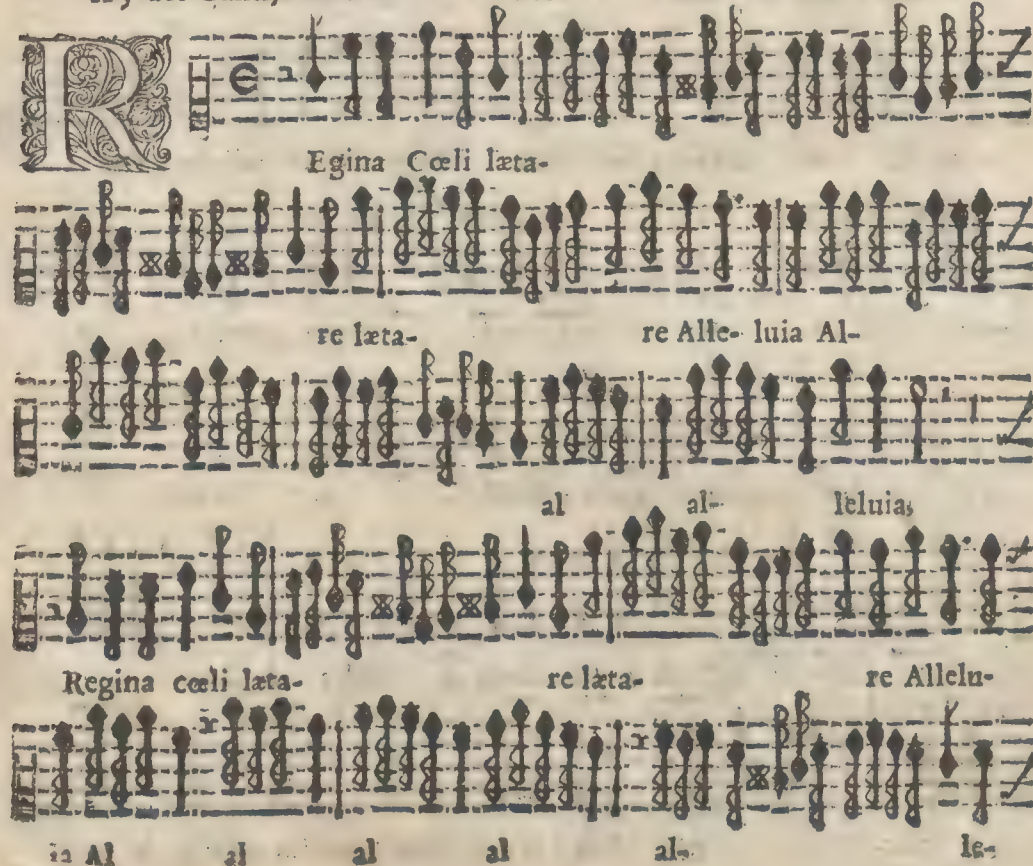 R
Egina Cœli læta-
re læta- re Alle- luia Al-
al al- leluia,
Regina cœli læta- re læta- re Allelu-
ia Al al al al al- le-